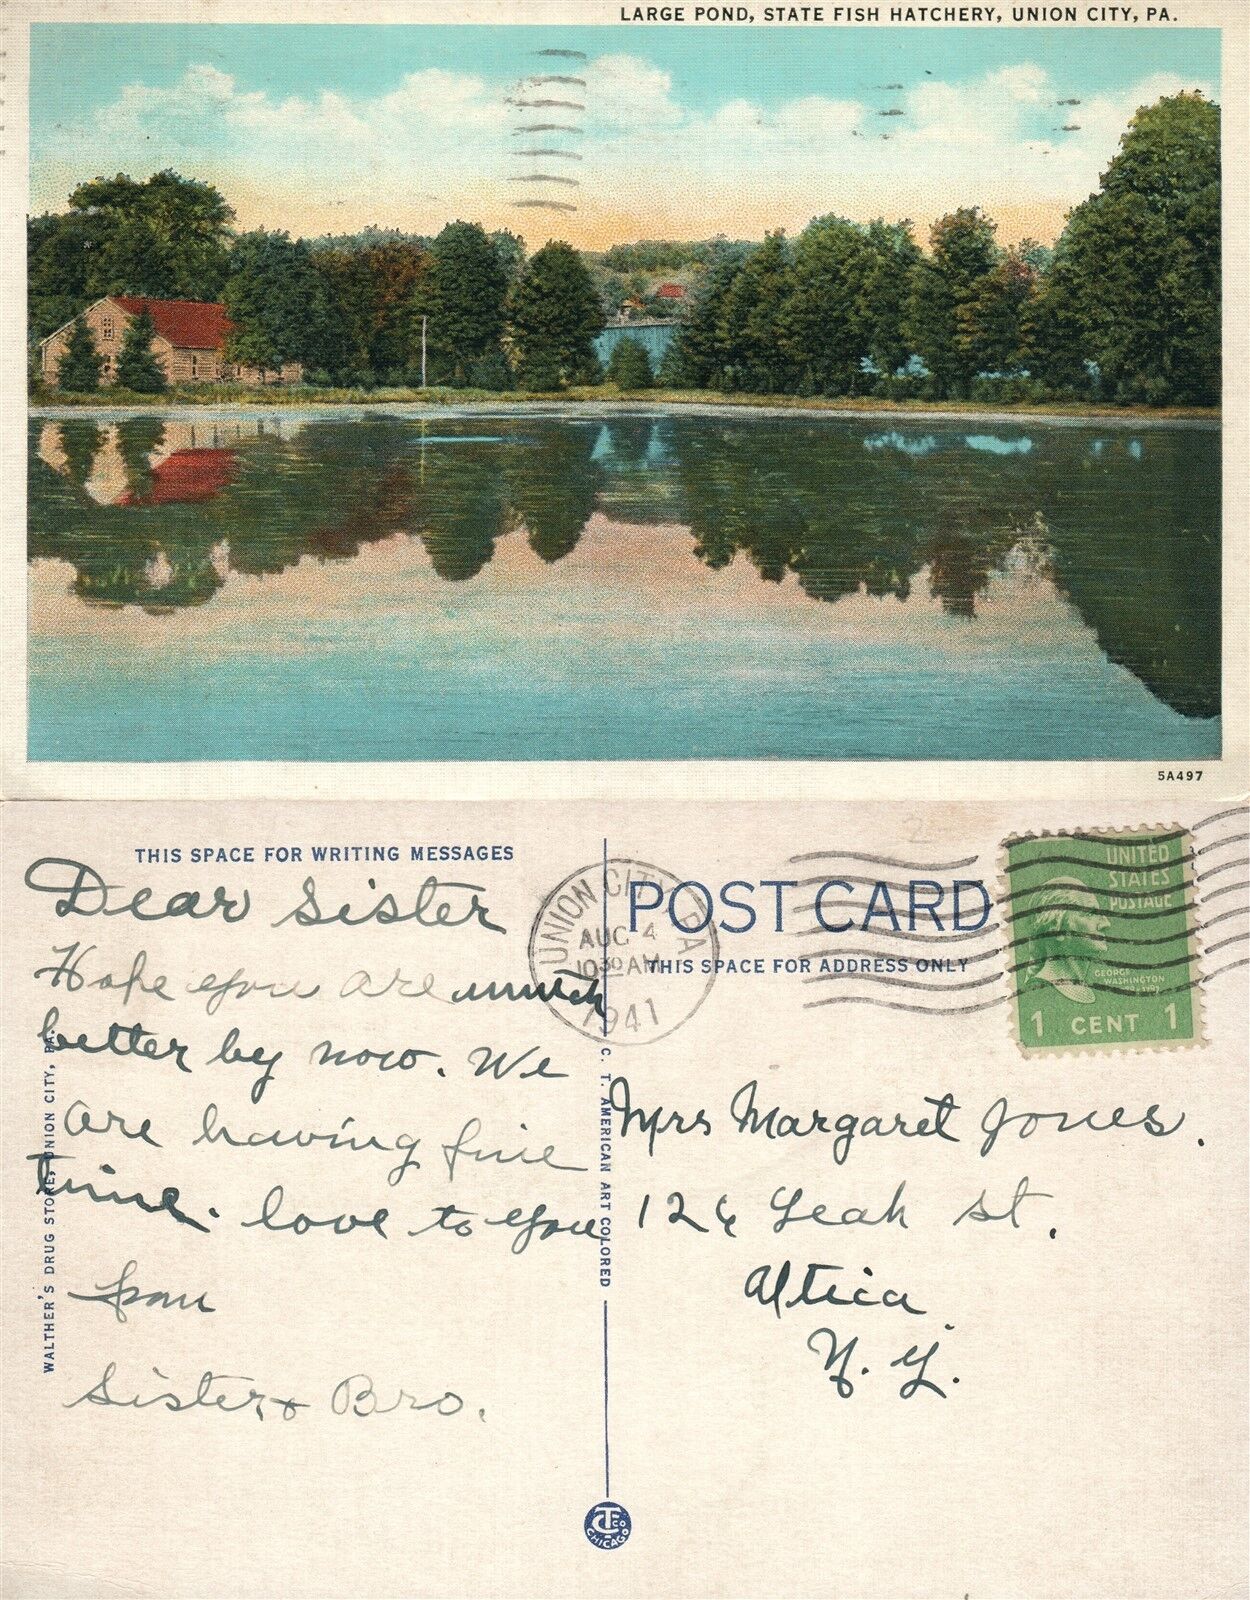 LARGE POND, STATE FISH HATCHERY, UNION CITY, PA.
5A497
THIS SPACE FOR WRITING MESSAGES
Dear Sister
Hope you are much
better by now. We
are having fine
time. love to you
from
Sister & Bro.
WALTHER'S DRUG STORE, UNION CITY, PA.
UNION CITY, PA
AUG 4
10 30 AM
1941
POST CARD
THIS SPACE FOR ADDRESS ONLY
UNITED
STATES
POSTAGE
GEORGE
WASHINGTON
1 CENT 1
C. T. AMERICAN ART COLORED
Mrs Margaret Jones.
126 Leah St.
Utica
N. Y.
CT CO
CHICAGO